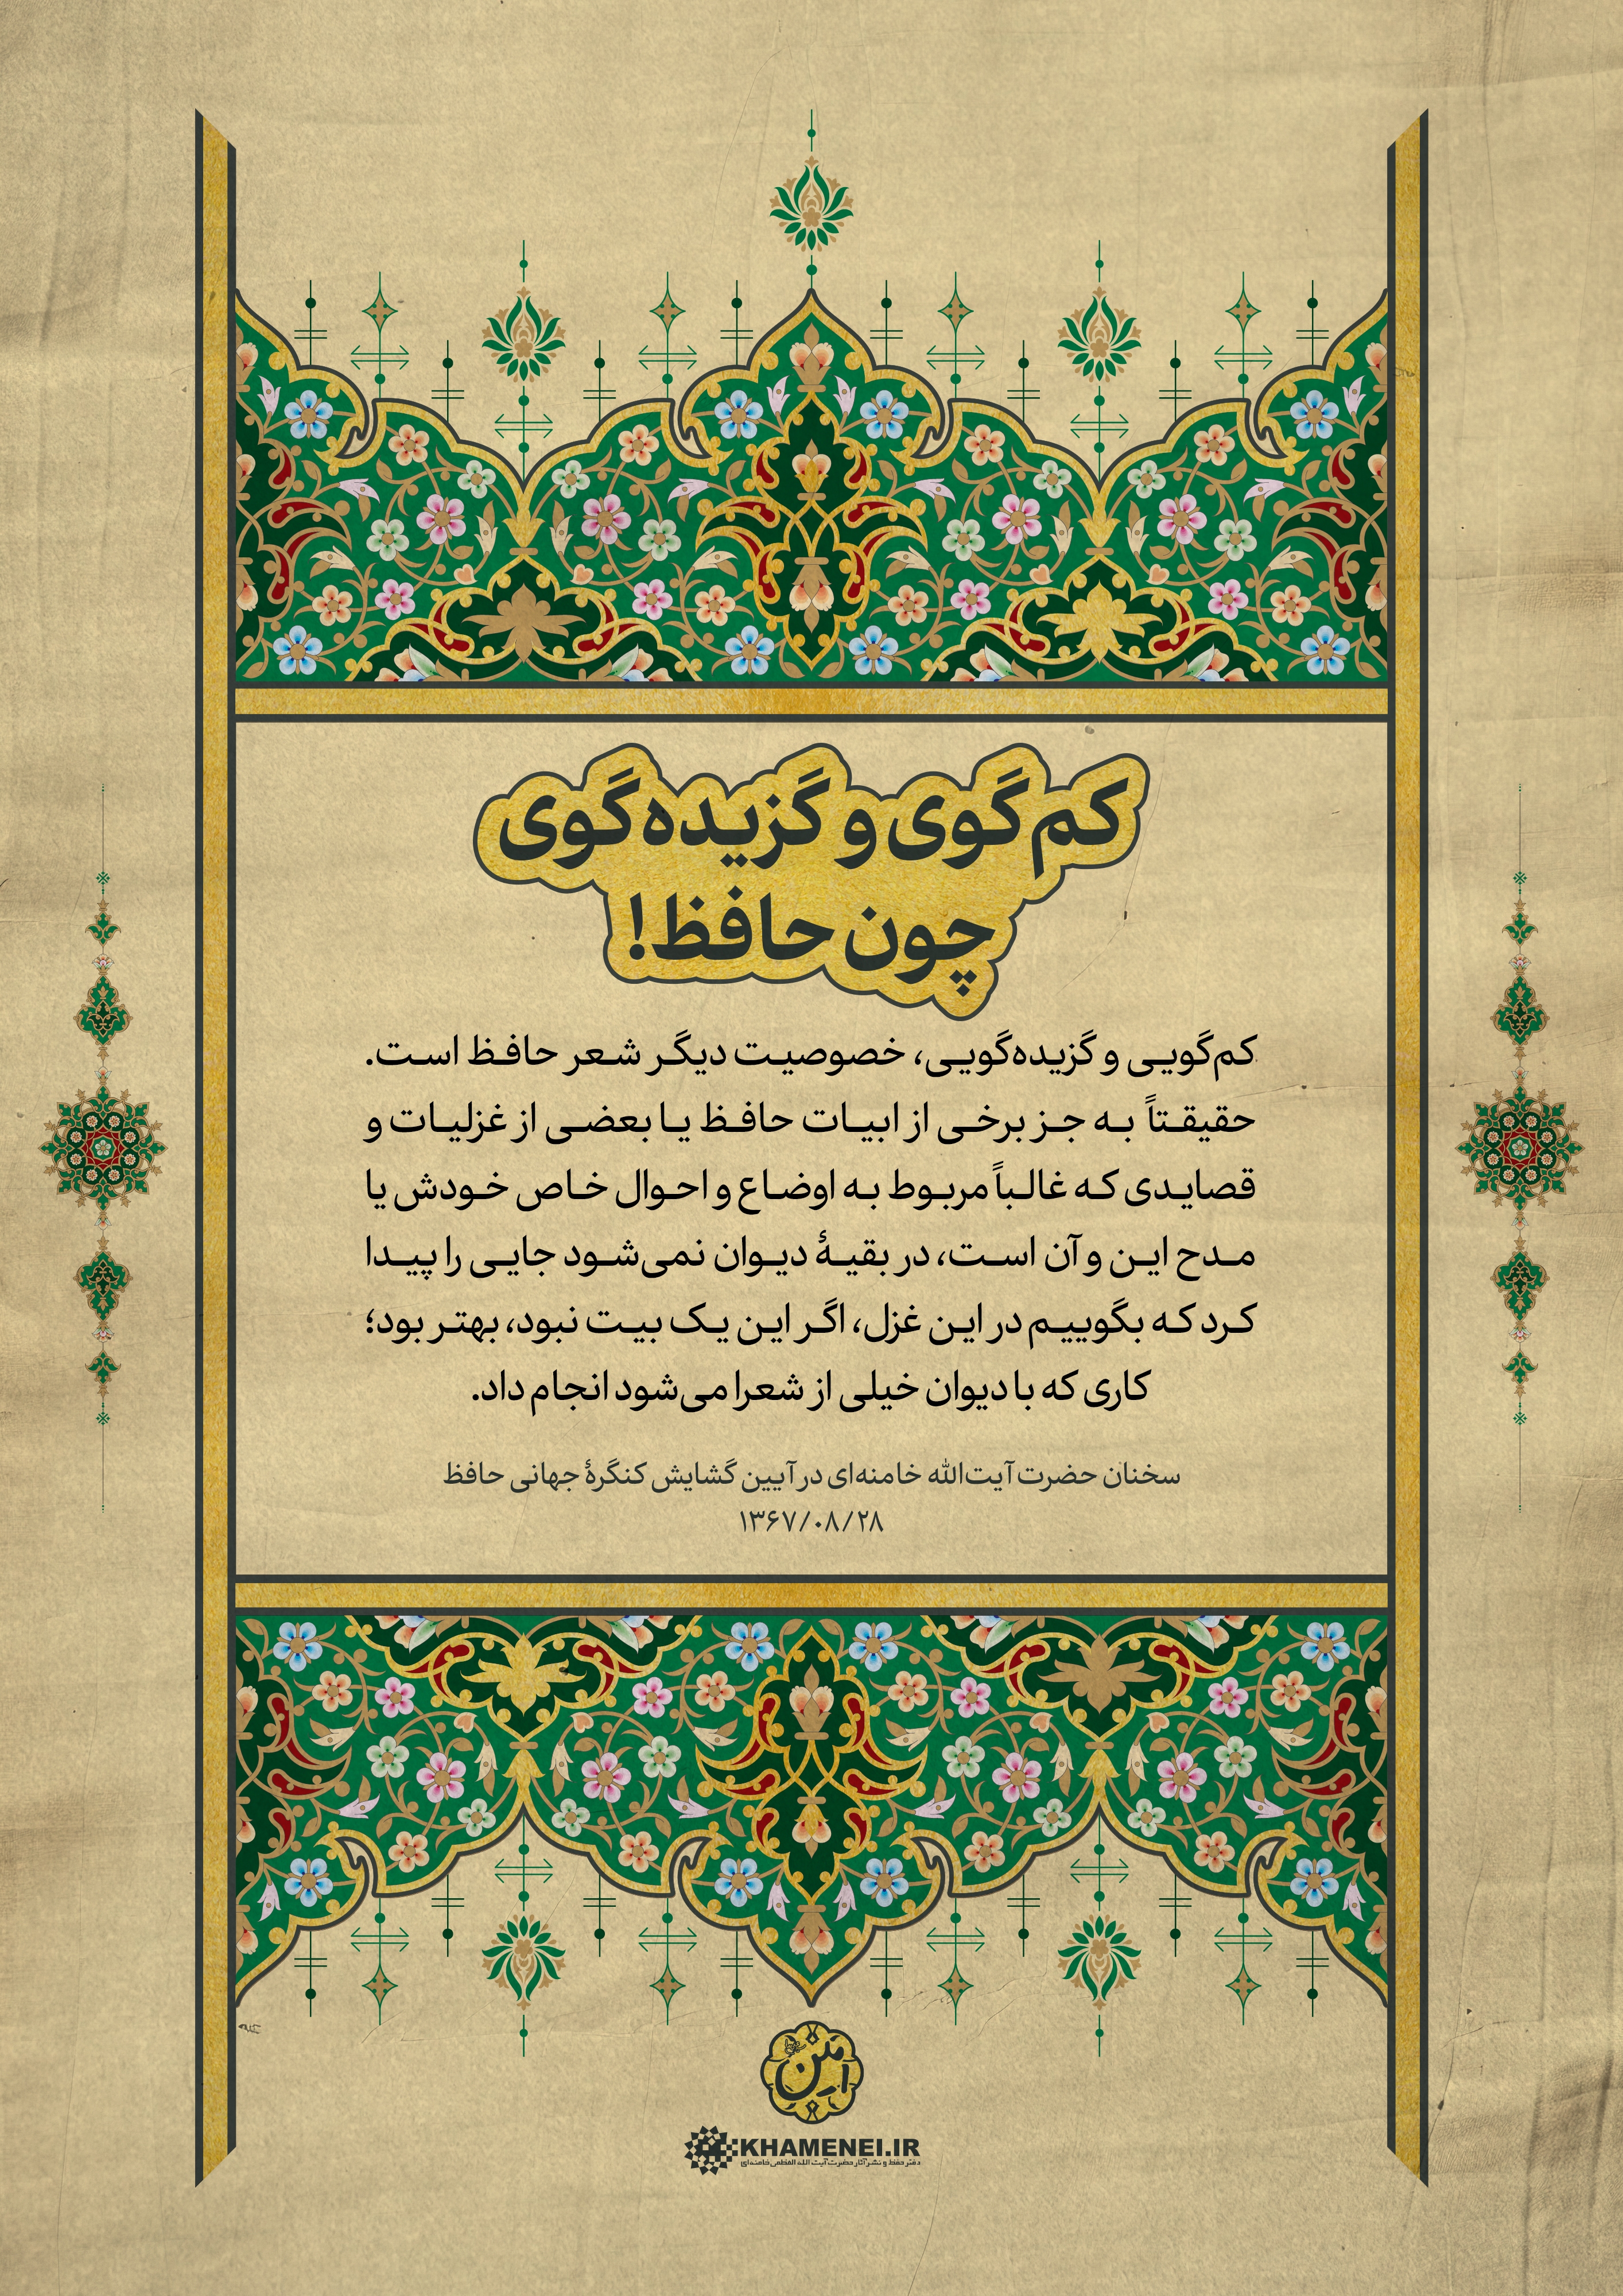 کم‌گوی و گزیده‌گوی
چون حافظ!
کم‌گویی و گزیده‌گویی، خصوصیت دیگر شعر حافظ است.
حقیقتاً به جز برخی از ابیات حافظ یا بعضی از غزلیات و
قصایدی که غالباً مربوط به اوضاع و احوال خاص خودش یا
مدح این و آن است، در بقیهٔ دیوان نمی‌شود جایی را پیدا
کرد که بگوییم در این غزل، اگر این یک بیت نبود، بهتر بود؛
کاری که با دیوان خیلی از شعرا می‌شود انجام داد.
سخنان حضرت آیت‌الله خامنه‌ای در آیین گشایش کنگرهٔ جهانی حافظ
۱۳۶۷/۰۸/۲۸
KHAMENEI.IR
دفتر حفظ و نشر آثار حضرت آیت الله العظمی خامنه‌ای